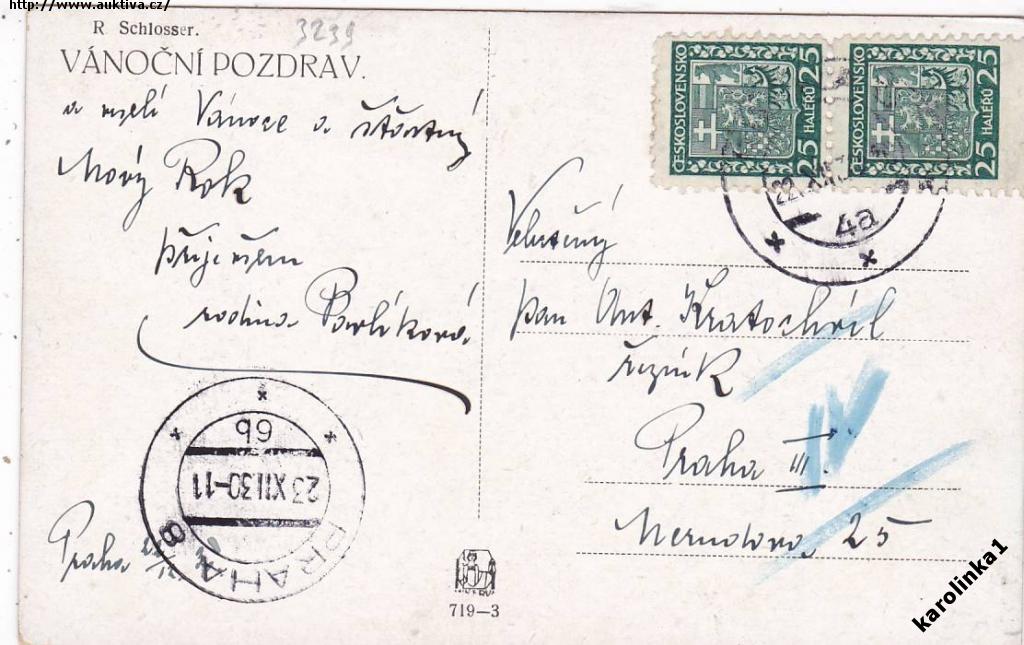 http://www.auktiva.cz/
R Schlosser.
3239
VÁNOČNÍ POZDRAV.
a veselé Vánoce a šťastný
Nový Rok
přeje všem
rodina Pavlíková.
Praha
ČESKOSLOVENSKO
25 HALÉŘŮ 25
ČESKOSLOVENSKO
25 HALÉŘŮ 25
22. XII.
4a
Velectěný
pan Ant. Kratochvíl
řezník
Praha III.
Nerudova 25
6b
23 XII 30-11
PRAHA 8
719-3
karolinka1